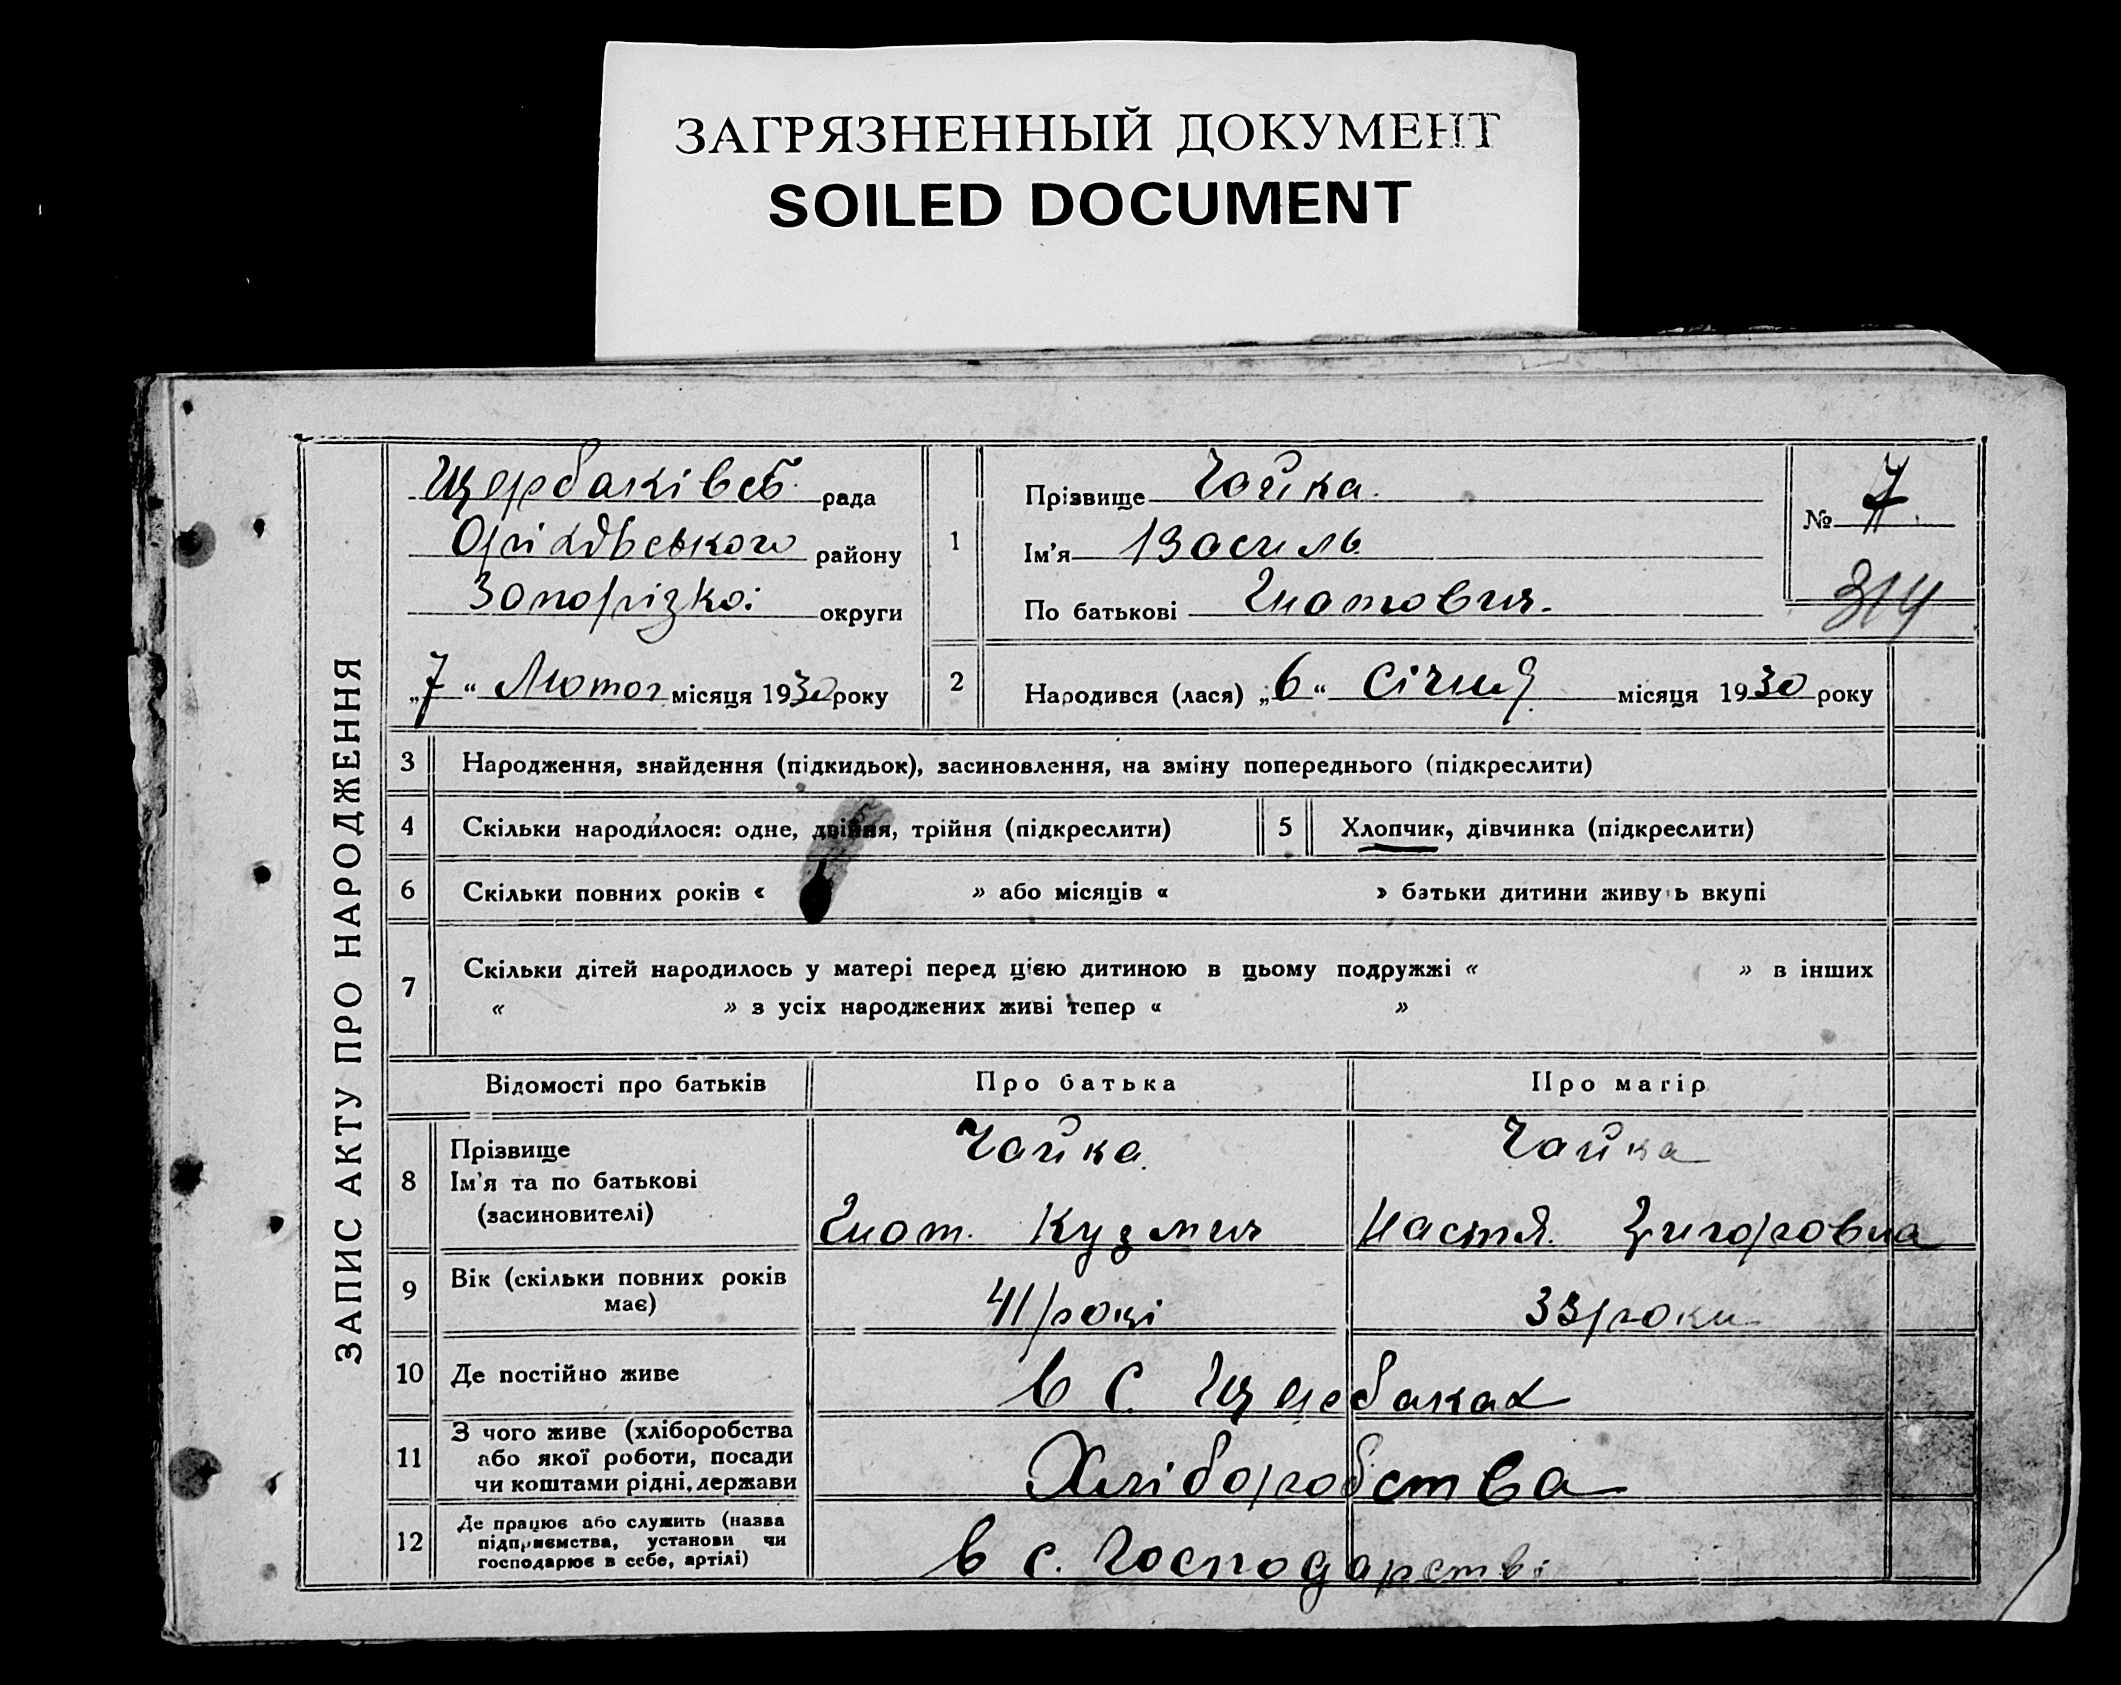 ЗАГРЯЗНЕННЫЙ ДОКУМЕНТ
SOILED DOCUMENT
ЗАПИС АКТУ ПРО НАРОДЖЕННЯ
Щербаківсь. рада
Оріхівського району
Запорізкоі округи
„7“ Лютог місяця 1930 року
1
Прізвище Чайка.
Ім'я Василь
По батькові Гнатович.
№ 7
314
2 Народився (лася) „6“ Січня місяця 1930 року
3 Народження, знайдення (підкидьок), засиновлення, на зміну попереднього (підкреслити)
4 Скільки народилося: одне, двійня, трійня (підкреслити) 5 Хлопчик, дівчинка (підкреслити)
6 Скільки повних років « » або місяців « » батьки дитини живуть вкупі
7 Скільки дітей народилось у матері перед цією дитиною в цьому подружжі « » в інших
« » з усіх народжених живі тепер « »
Відомості про батьків Про батька Про матір
8 Прізвище
Ім'я та по батькові
(засиновителі)
Чайка Чайка
Гнат. Кузмич Настя. Григоровна
9 Вік (скільки повних років
має)
41 років 33 роки
10 Де постійно живе в с. Щербаках
11 З чого живе (хліборобства
або якої роботи, посади
чи коштами рідні, держави
Хліборобства
12 Де працює або служить (назва
підприємства, установи чи
господарює в себе, артілі)
в с. Господарстві